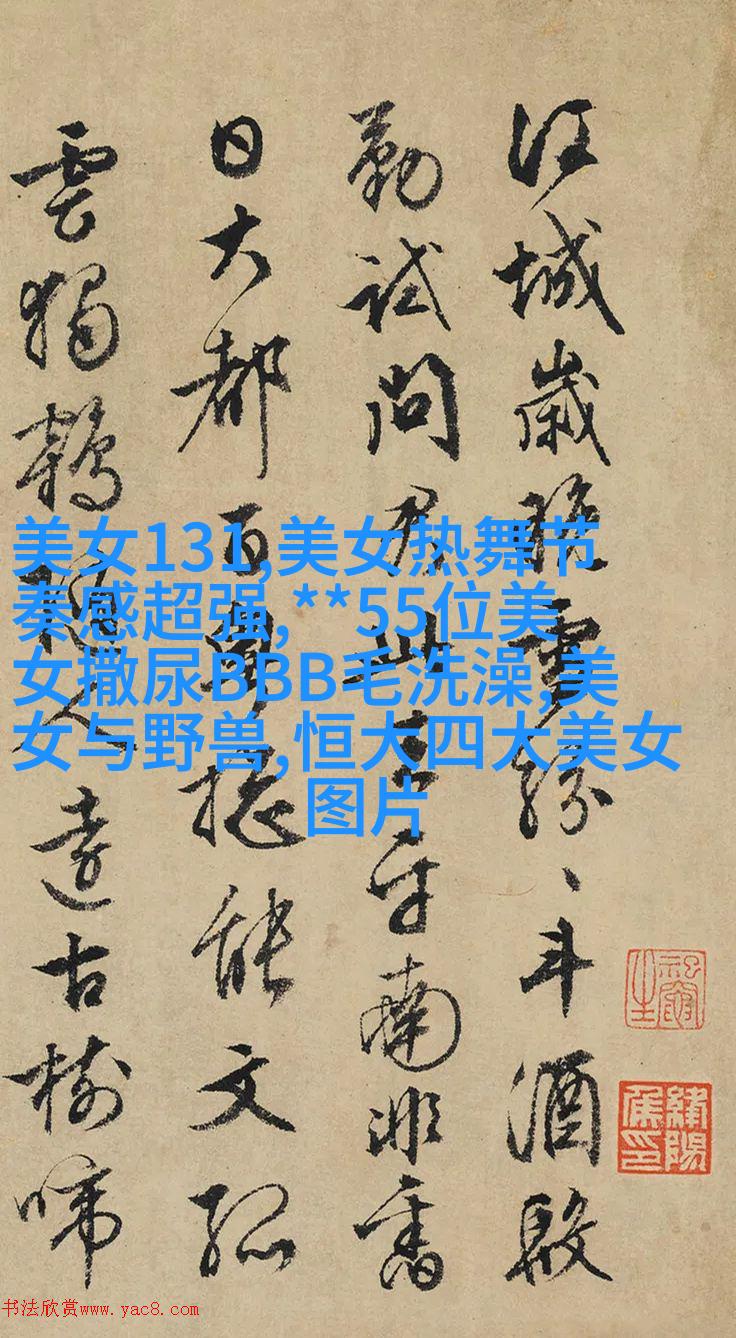 江城歲雪紛、斗酒殷
勤試問君此去平南非舊
日大都百粵總能文孤
雲獨鶴隨人遠古樹啼
美女131,美女热舞节
奏感超强,**55位美
女撒尿BBB毛洗澡,美
女与野兽,恒大四大美女
图片
书法欣赏www.yac8.com